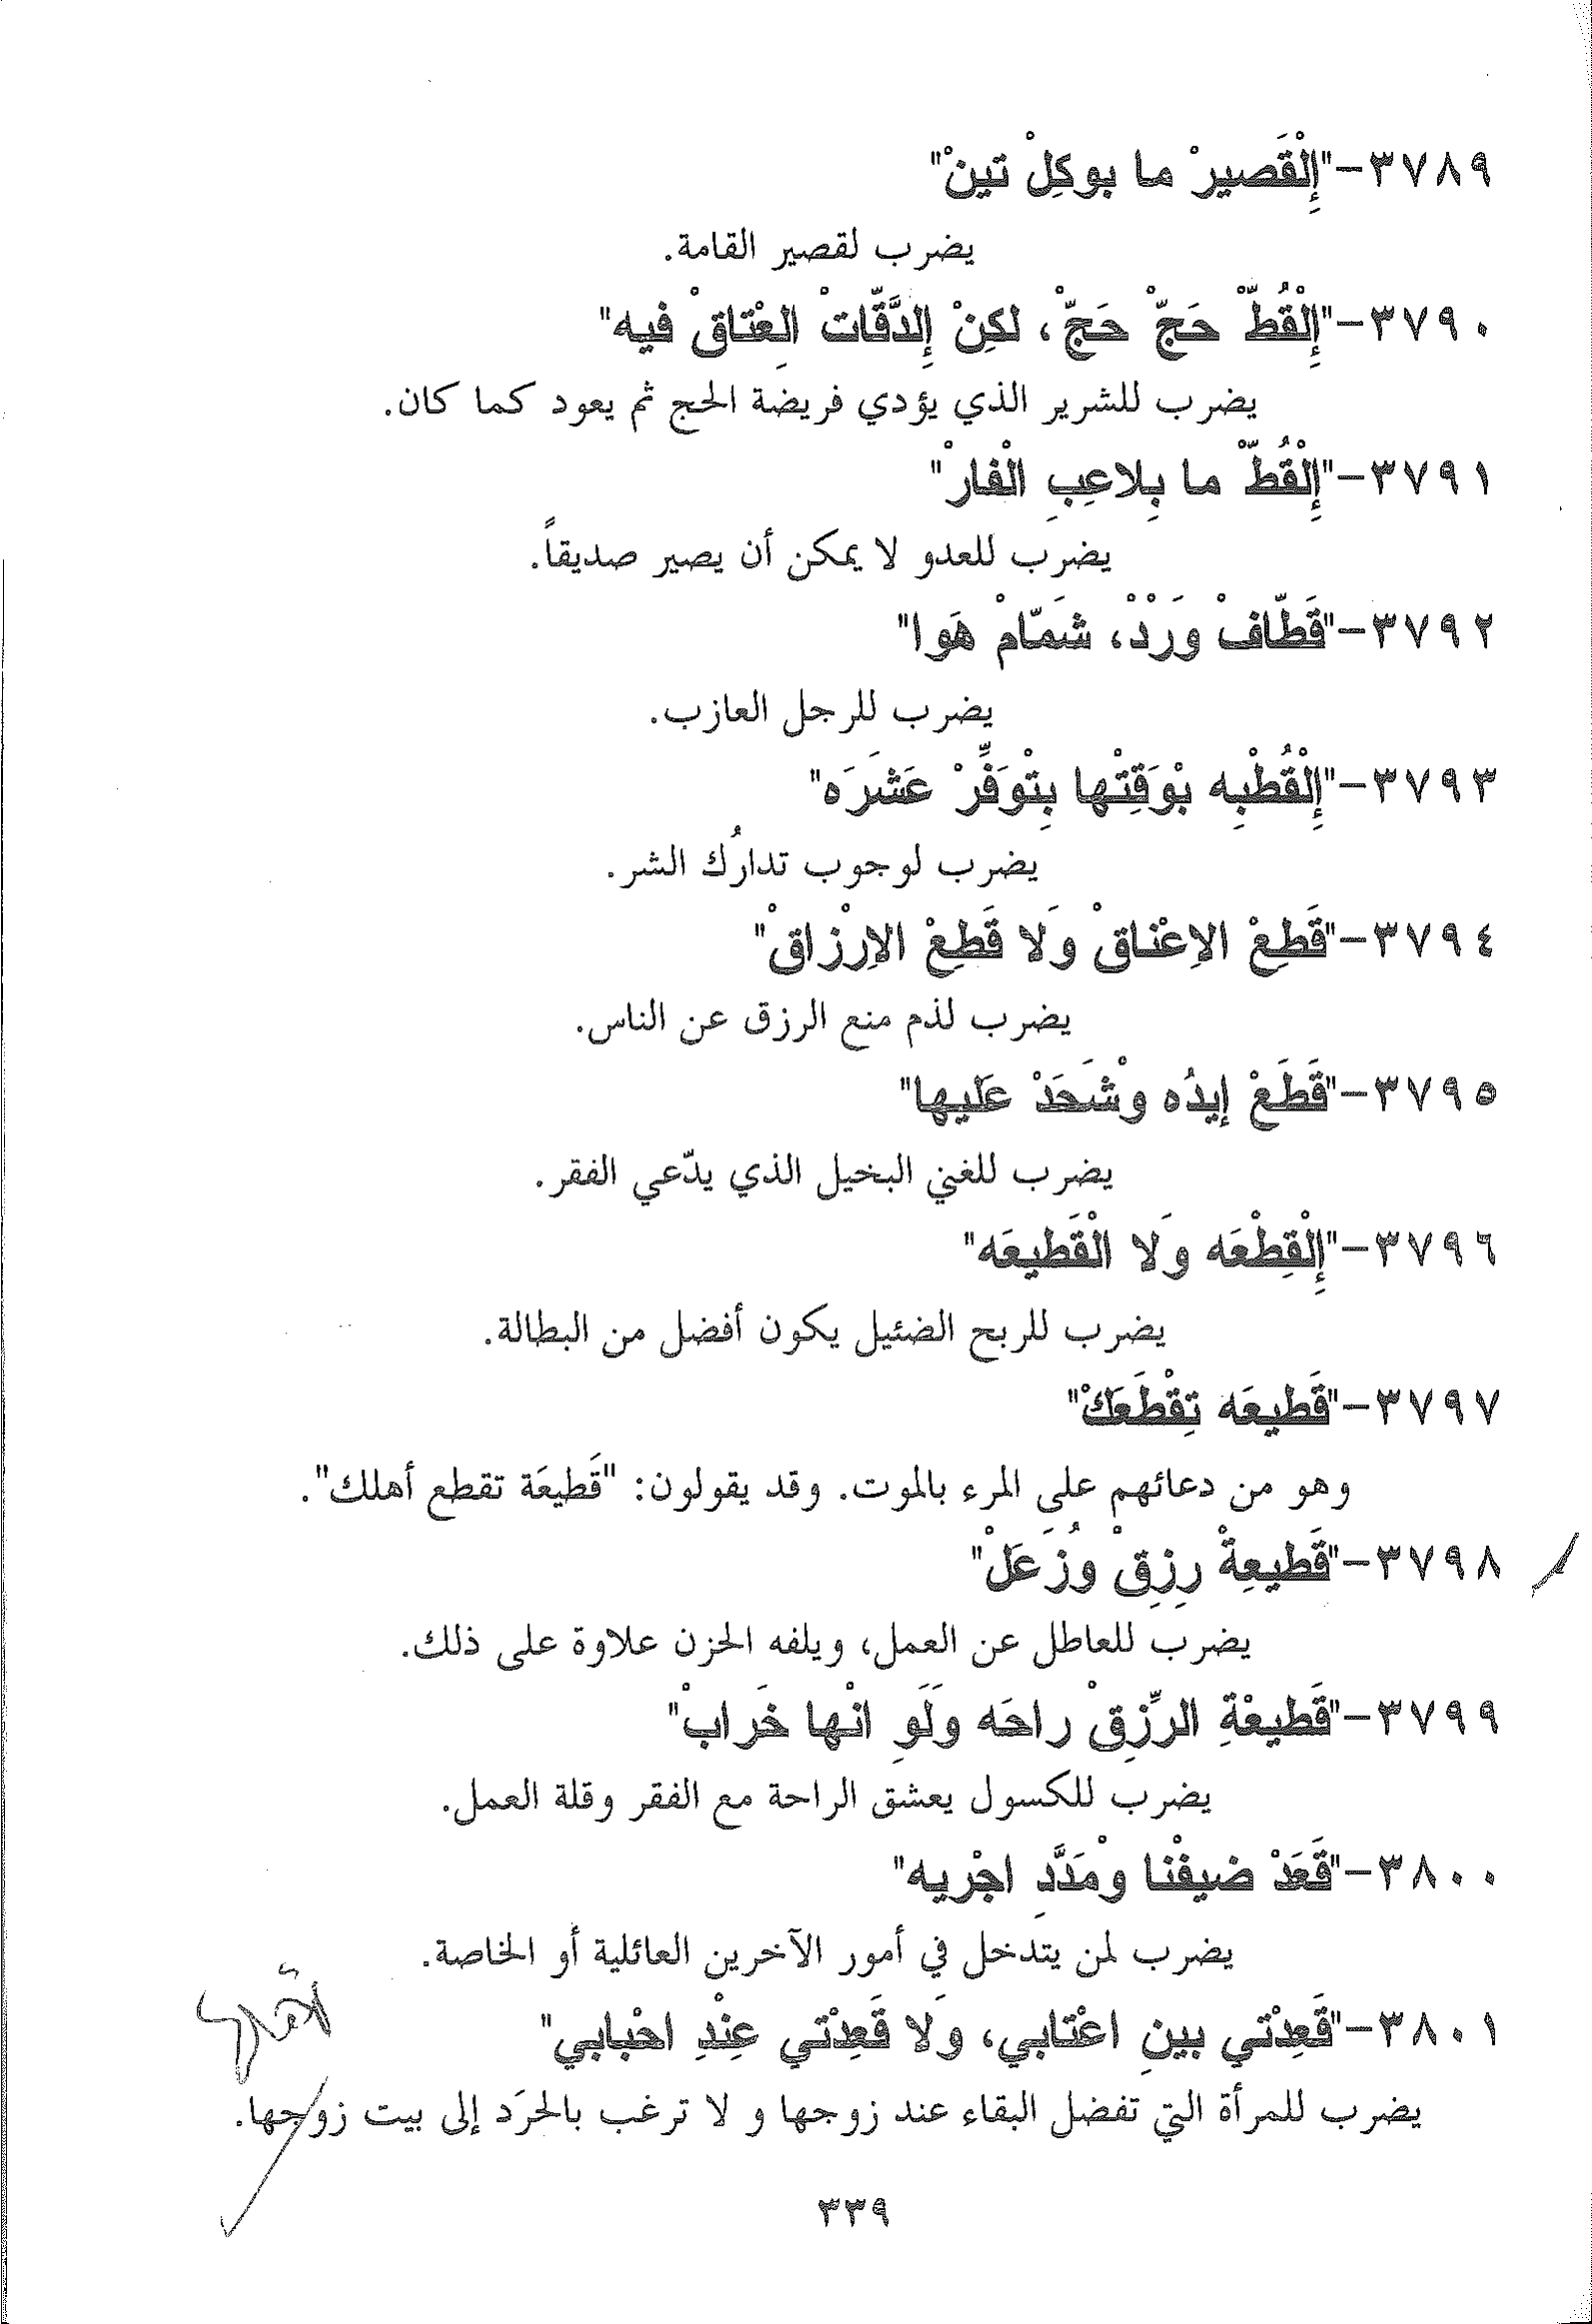 ٣٧٨٩-"إِلْقَصيرْ ما بوكِلْ تينْ"
يضرب لقصير القامة.
٣٧٩٠-"إِلْقُطّْ حَجّْ حَجّْ، لكِنْ إِلدَّقّاتْ لِعْتاقْ فيه"
يضرب للشرير الذي يؤدي فريضة الحج ثم يعود كما كان.
٣٧٩١-"إِلْقُطّْ ما بِلاعِبِ الْفارْ"
يضرب للعدو لا يمكن أن يصير صديقاً.
٣٧٩٢-"قَطّافْ وَرْدْ، شَمّامْ هَوا"
يضرب للرجل العازب.
٣٧٩٣-"إِلْقُطْبِه بْوَقِتْها بِتْوَفِّرْ عَشَرَه"
يضرب لوجوب تدارُك الشر.
٣٧٩٤-"قَطِعْ الاِعْناقْ وَلا قَطِعْ الاِرْزاقْ"
يضرب لذم منع الرزق عن الناس.
٣٧٩٥-"قَطَعْ إيدُه وْشَحَدْ عَليها"
يضرب للغني البخيل الذي يدّعي الفقر.
٣٧٩٦-"إِلْقِطْعَه وَلا الْقَطيعَه"
يضرب للربح الضئيل يكون أفضل من البطالة.
٣٧٩٧-"قَطيعَه تِقْطَعَكْ"
وهو من دعائهم على المرء بالموت. وقد يقولون: "قَطيعَة تقطع أهلك".
٣٧٩٨-"قَطيعِةْ رِزِقْ وُزَعَلْ"
يضرب للعاطل عن العمل، ويلفه الحزن علاوة على ذلك.
٣٧٩٩-"قَطيعْةِ الرِّزِقْ راحَه وَلَوِ انْها خَرابْ"
يضرب للكسول يعشق الراحة مع الفقر وقلة العمل.
٣٨٠٠-"قَعَدْ ضيفْنا وْمَدَّدِ اجْريه"
يضرب لمن يتدخل في أمور الآخرين العائلية أو الخاصة.
٣٨٠١-"قَعِدْتي بينِ اعْتابي، وَلا قَعِدْتي عِنْدِ احْبابي"
يضرب للمرأة التي تفضل البقاء عند زوجها و لا ترغب بالحرَد إلى بيت زوجها.
٣٣٩